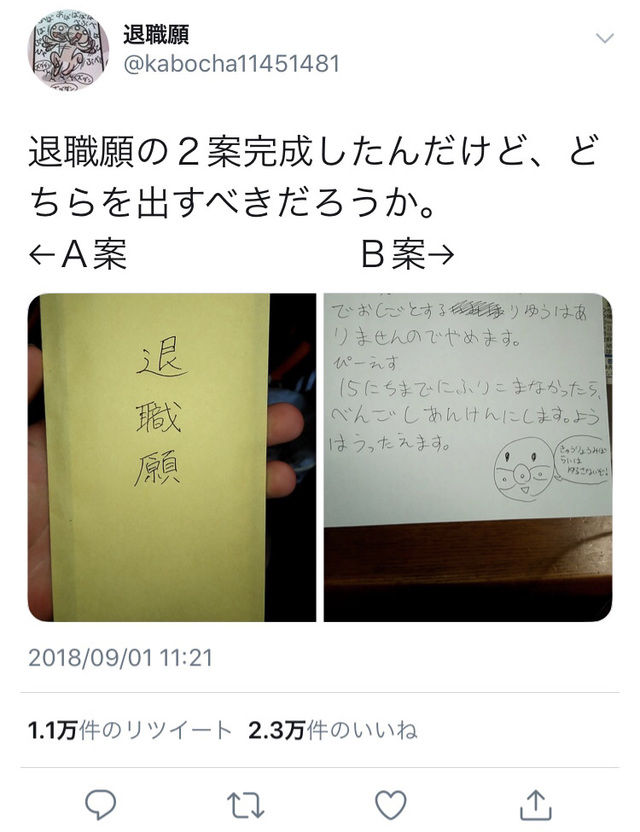 退職願
@kabocha11451481
退職願の２案完成したんだけど、ど
ちらを出すべきだろうか。
←Ａ案 Ｂ案→
退
職
願
でおしごとする りゆうはあ
りませんのでやめます。
ぴーえす
15にちまでにふりこまなかったら、
べんごしあんけんにします。よう
はうったえます。
きゅうりょうみば
らいは
ゆるさないぞ!
2018/09/01 11:21
1.1万件のリツイート 2.3万件のいいね